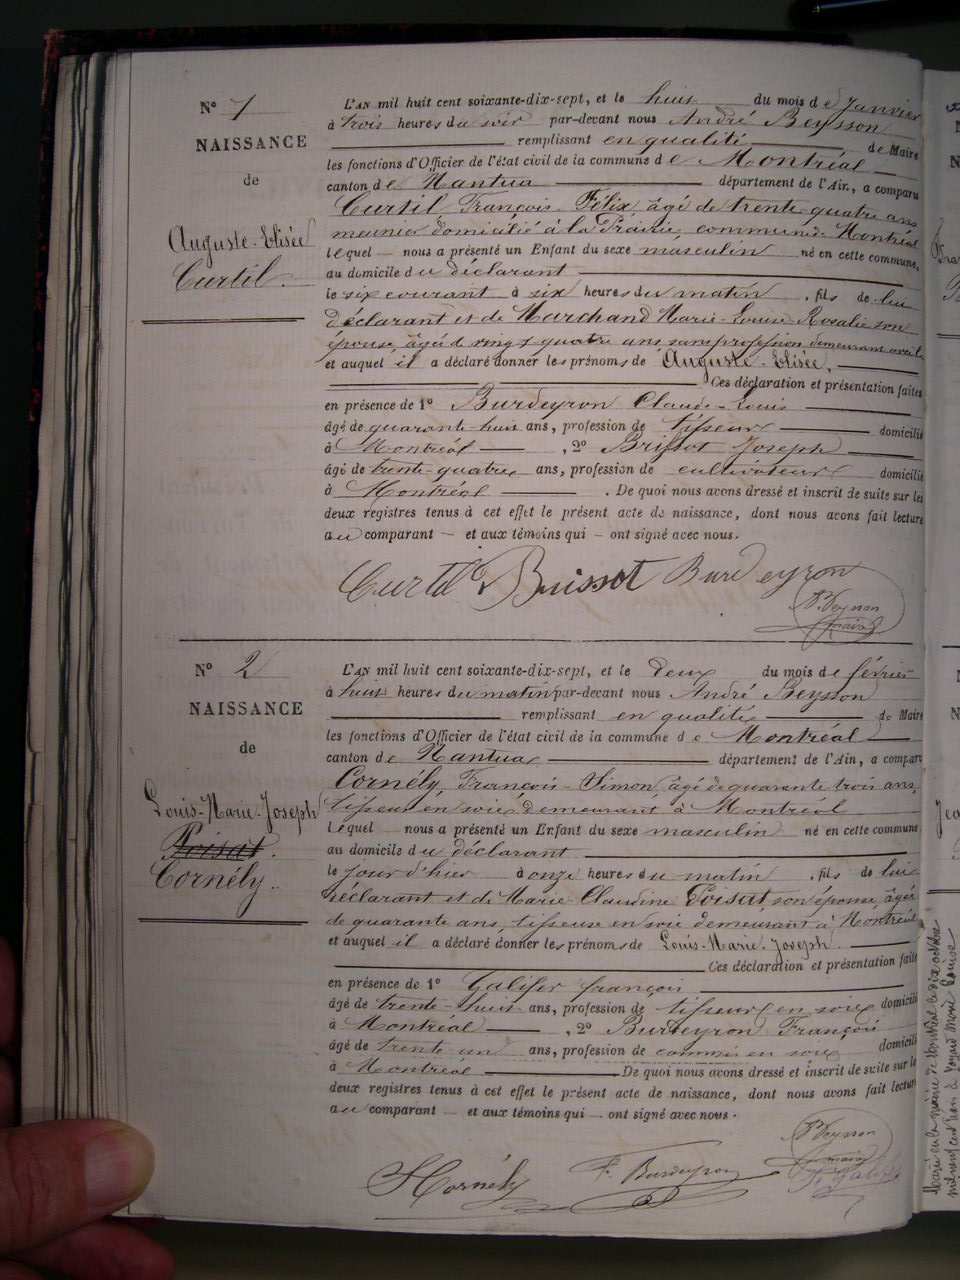 N° 1
NAISSANCE
de
Auguste-Elisée
Curtil.
L'AN mil huit cent soixante-dix-sept, et le huit du mois de Janvier
à trois heures du soir par-devant nous André Beysson
remplissant en qualité de Maire
les fonctions d'Officier de l'état civil de la commune de Montréal
canton de Nantua département de l'Ain, a comparu
Curtil François-Félix, âgé de trente quatre ans
meunier domicilié à la Prairie, commune de Montréal
lequel nous a présenté un Enfant du sexe masculin né en cette commune,
au domicile du déclarant
le six courant à six heures du matin, fils de lui
déclarant et de Marchand Marie-Louise Rosalie son
épouse, âgée de vingt quatre ans, sans profession demeurant avec lui
et auquel il a déclaré donner les prénoms de Auguste-Elisée,
Ces déclaration et présentation faites
en présence de 1° Burdeyron Claude-Louis
âgé de quarante-huit ans, profession de tisseur domicilié
à Montréal, 2° Brissot Joseph
âgé de trente-quatre ans, profession de cultivateur domicilié
à Montréal. De quoi nous avons dressé et inscrit de suite sur les
deux registres tenus à cet effet le présent acte de naissance, dont nous avons fait lecture
au comparant et aux témoins qui ont signé avec nous.
Curtil Buissot Burdeyron
Beysson
maire
N° 2
NAISSANCE
de
Louis-Marie-Joseph
Poisat.
Cornély.
L'AN mil huit cent soixante-dix-sept, et le deux du mois de février
à huit heures du matin par-devant nous André Beysson
remplissant en qualité de Maire
les fonctions d'Officier de l'état civil de la commune de Montréal
canton de Nantua département de l'Ain, a comparu
Cornély, François-Simon, âgé de quarante trois ans,
tisseur en soie demeurant à Montréal
lequel nous a présenté un Enfant du sexe masculin né en cette commune
au domicile du déclarant
le jour d'hier à onze heures du matin, fils de lui
déclarant et de Marie-Claudine Poisat son épouse, âgée
de quarante ans, tisseuse en soie demeurant à Montréal
et auquel il a déclaré donner les prénoms de Louis-Marie-Joseph.
Ces déclaration et présentation faites
en présence de 1° Galifer françois
âgé de trente-huit ans, profession de tisseur en soie domicilié
à Montréal, 2° Burdeyron François
âgé de trente un ans, profession de commis en soie domicilié
à Montréal De quoi nous avons dressé et inscrit de suite sur le
deux registres tenus à cet effet le présent acte de naissance, dont nous avons fait lecture
au comparant et aux témoins qui ont signé avec nous.
Beysson
maire
Cornély F. Burdeyron
Marié en la mairie de Montréal le dix octobre
mil neuf cent à Marie Louise